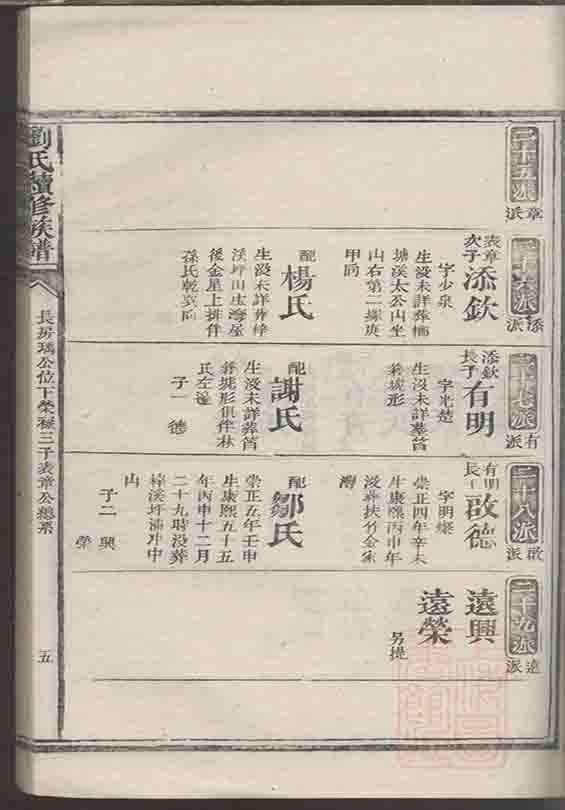 劉氏續修族譜
長房瑀公位下榮祿三子表章公總系
五
二十五派
章派
二十六派
添派
表章
次子
添欽
字少泉
生沒未詳葬楠
塘溪太公山坐
山右第二塚庚
甲向
配
楊氏
生沒未詳葬梓
溪坪山庄海屋
後金星上排伴
孫氏乾巽向
二十七派
有派
添欽
長子
有明
字光楚
生沒未詳葬筲
箕坡形
配
謝氏
生沒未詳葬筲
箕坡形俱伴林
氏左邊
子一 德
二十八派
啟派
有明
長子
啟德
字明燦
崇正四年辛未
生康熙丙申年
沒葬扶竹金家
灣
配
鄒氏
崇正五年壬申
生康熙五十五
年丙申十二月
二十九時沒葬
梓溪坪浦冲中
山
子二 興
榮
二十九派
遠派
遠興
遠榮
另提